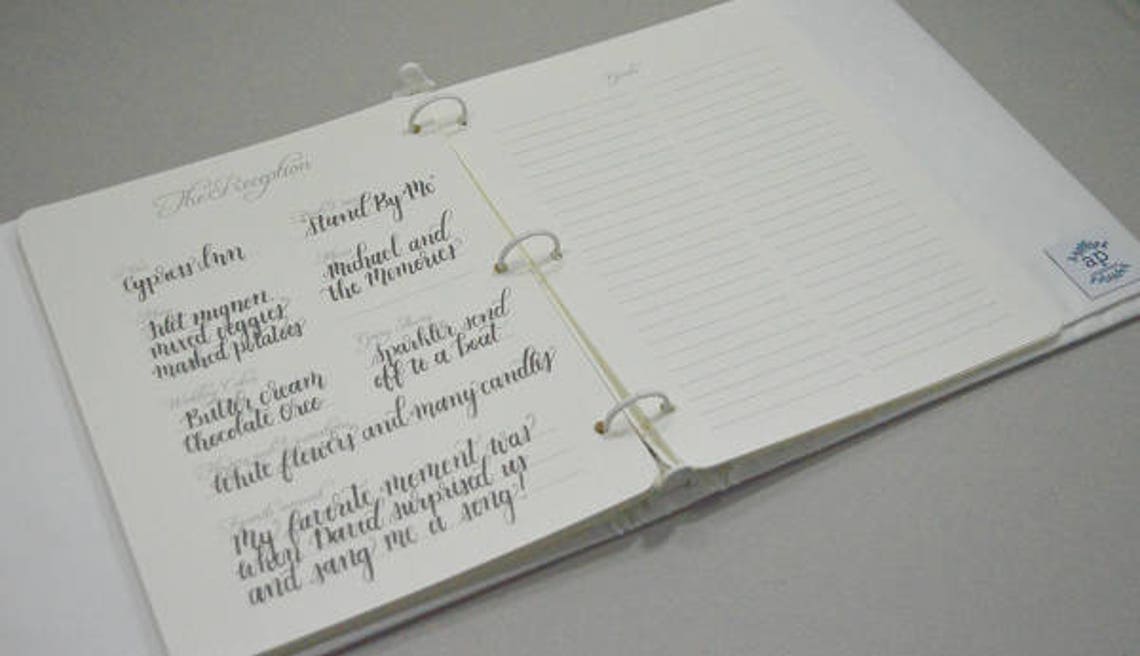 The Reception
Cypress Inn
filet mignon
mixed veggies
mashed potatoes
Wedding Cake
Butter cream
Chocolate Oreo
Stand By Me
Michael and
the Memories
Sparkler send
off to a boat
White flowers and many candles
My favorite moment was
when David surprised us
and sang me a song!
ap